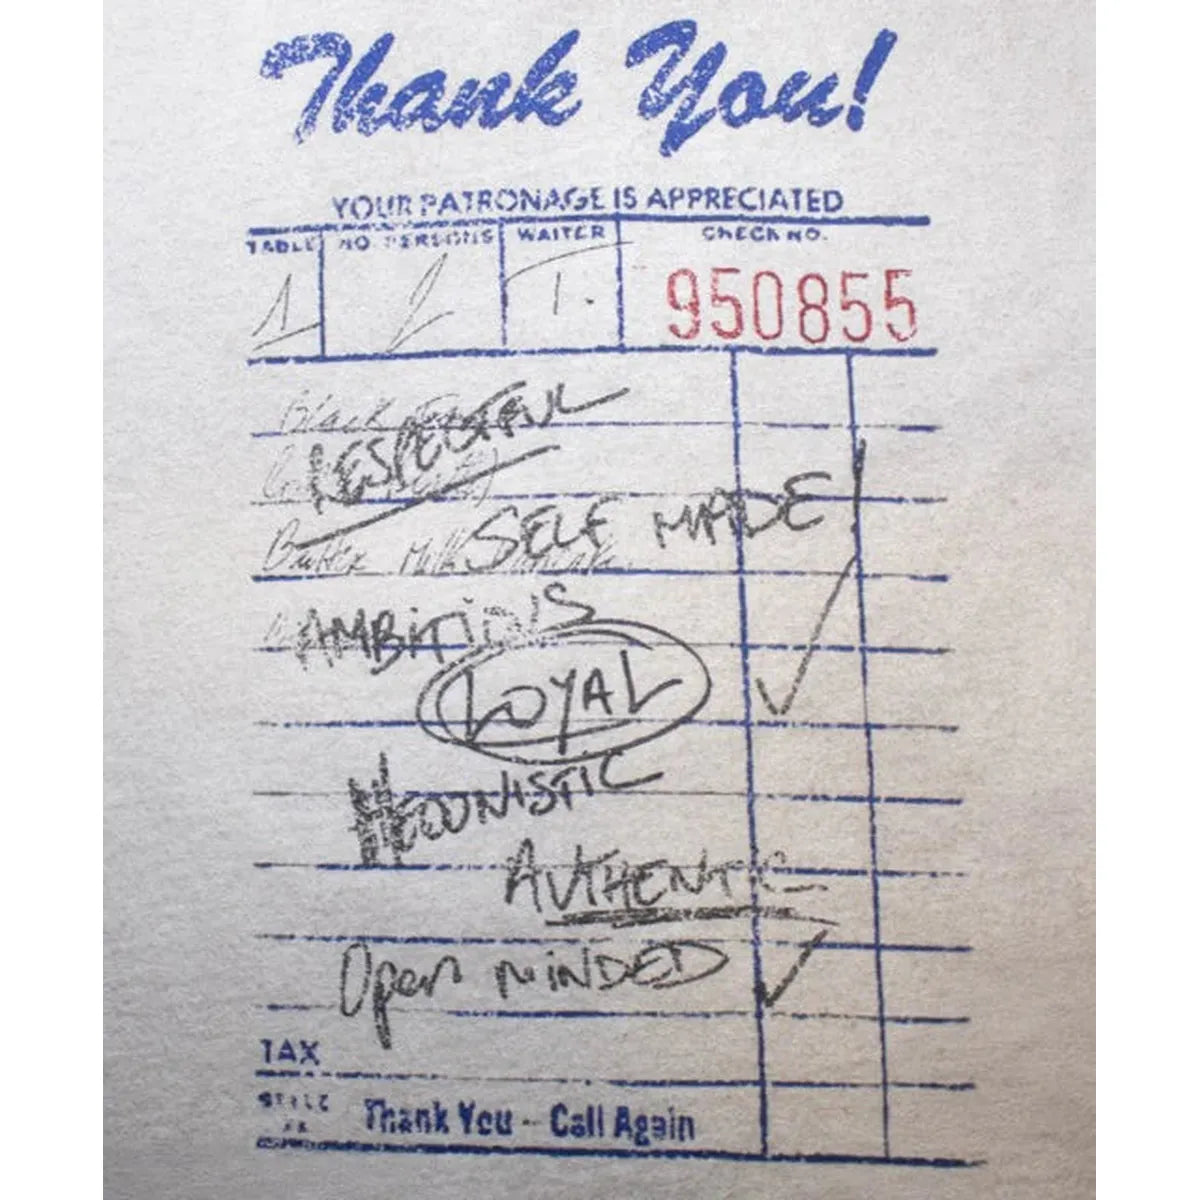 Thank You!
YOUR PATRONAGE IS APPRECIATED
TABLE NO PERSONS WAITER CHECK NO.
1 2 T. 950855
Black
RESPECTFUL
SELF MADE!
Butter Milk
AMBITIOUS
LOYAL
HEDONISTIC
AUTHENTIC
Open MINDED
TAX
Thank You - Call Again